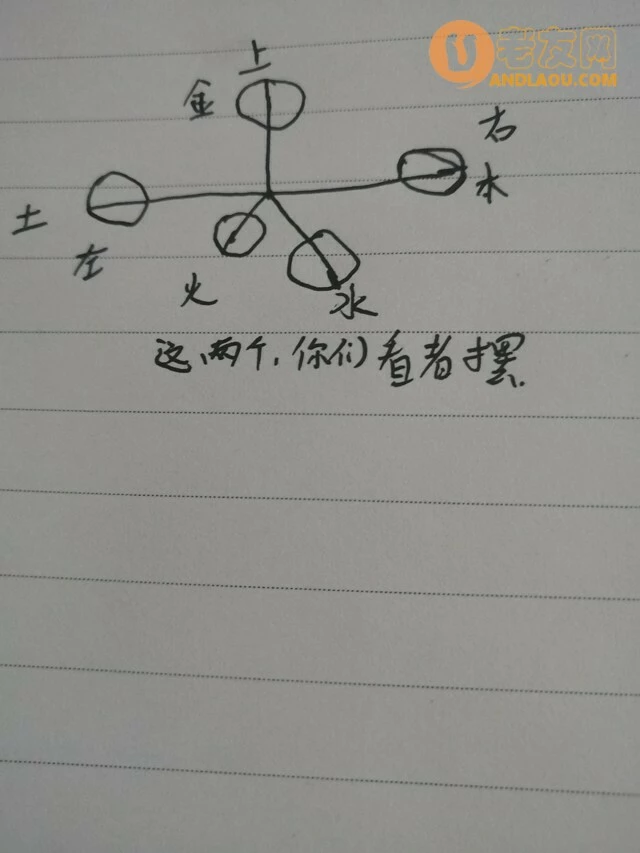 老友网
ANDLAOU.COM
上
金
右
木
土
左
火
水
这两个,你们看者摆.